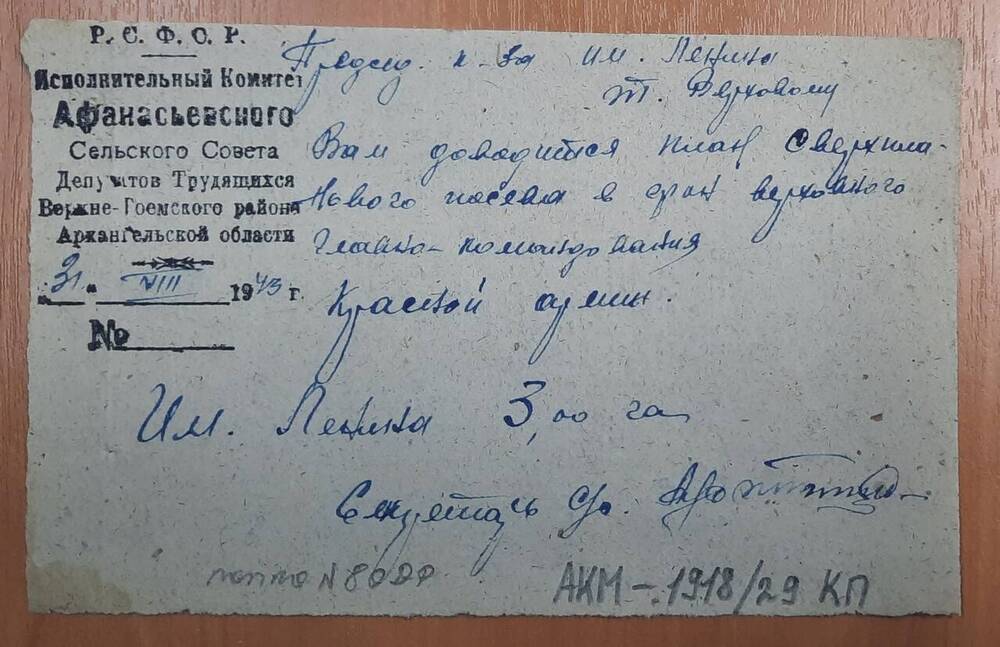 Р. С. Ф. С. Р.
Исполнительный Комитет
Афанасьевского
Сельского Совета
Депутатов Трудящихся
Верхне-Тоемского района
Архангельской области
„31“ VIII 1943 г.
№
Председ. к-за им. Ленина
т. Верховому
Вам доводится план сверхпла-
нового посева в фонд верховного
главно-командования
Красной армии.
Им. Ленина 3,00 га
Секретарь с/с.
АКМ-1918/29 КП